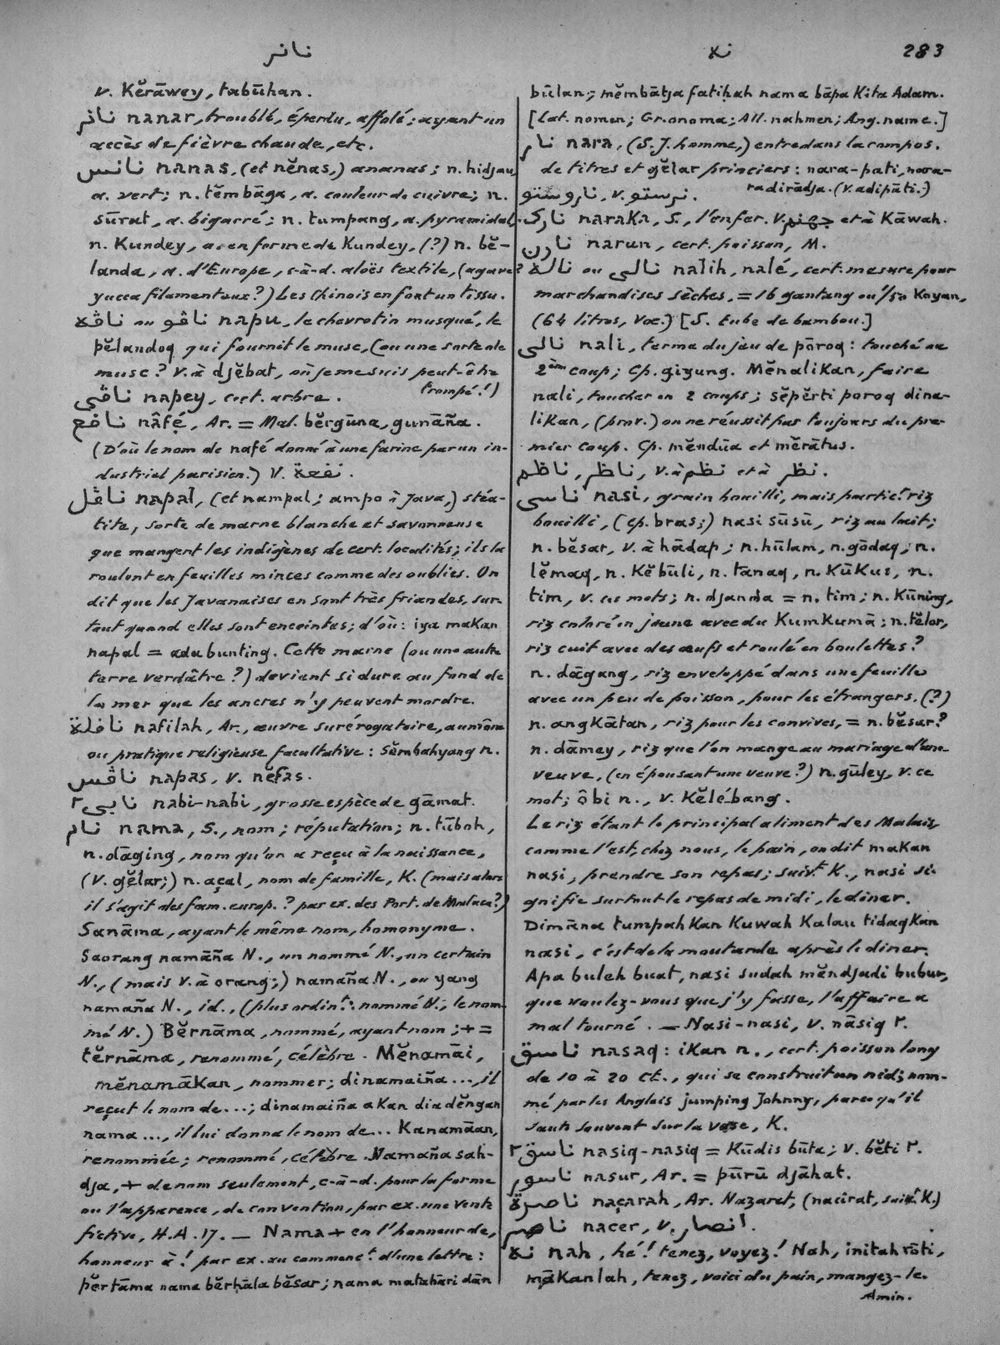 نانر
نه
283
v. Kĕrāwey, tabūhan.
نانر nanar, troublé, éperdu, affolé; ayant un
accès de fièvre chaude, etc.
نانس nanas, (et nĕnas,) ananas; n. hidjau,
a. vert; n. tĕmbāga, a. couleur de cuivre; n.
sūrat, a. bigarré; n. tumpang, a. pyramidal;
n. Kundey, a. en forme de Kundey, (?) n. bĕ-
landa, a. d'Europe, c-à-d. aloës textile, (agave?
yucca filamenteux?) Les Chinois en font un tissu.
ناڤله ou ناڤو napu, le chevrotin musqué, le
pĕlandoq qui fournit le musc, (ou une sorte de
musc? V. à djĕbat, où je me suis peut-être
trompé!)
ناڤي napey, cert. arbre.
نافع nâfé, Ar. = Mal. bĕrgūna, gunāña.
(D'où le nom de nafé donné à une farine par un in-
dustriel parisien.) V. نفعة.
ناڤل napal, (et nampal; ampo à Java,) stéa-
tite, sorte de marne blanche et savonneuse
que mangent les indigènes de cert. localités; ils la
roulent en feuilles minces comme des oublies. On
dit que les Javanaises en sont très friandes, sur-
tout quand elles sont enceintes; d'où: iya makan
napal = ada bunting. Cette marne (ou une autre
terre verdâtre?) devient si dure au fond de
la mer que les ancres n'y peuvent mordre.
نافلة nafilah, Ar., œuvre surérogatoire, aumône
ou pratique religieuse facultative: sĕmbahyang n.
ناڤس napas, v. nĕfas.
نابي٢ nabi-nabi, grosse espèce de gāmat.
نام nama, S., nom; réputation; n. tūboh,
n. dāging, nom qu'on a reçu à la naissance,
(V. gĕlar;) n. açal, nom de famille, K. (mais alors
il s'agit des fam. europ.? par ex. des Port. de Malaca?)
Sanāma, ayant le même nom, homonyme.
Saorang namāña N., un nommé N., un certain
N., (mais V. à orang;) namāña N., ou yang
namāña N., id., (plus ordint: nommé N.; le nom-
mé N.) Bĕrnāma, nommé, ayant nom; + =
tĕrnāma, renommé, célèbre. Mĕnamāi,
mĕnamāKan, nommer; dinamaiña ..., il
reçut le nom de...; dinamaiña akan dia dĕngan
nama ..., il lui donna le nom de... Kanamāan,
renommée; renommé, célèbre. Namāña sah-
dja, + de nom seulement, c-à-d. pour la forme
ou l'apparence, de convention, par ex. une vente
fictive, H.A. 17. — Nama + en l'honneur de,
honneur à! par ex. au commenct d'une lettre:
pĕrtāma nama bĕrhāla bĕsar; nama matahāri dān
būlan; mĕmbātja fatiḥah nama bāpa Kita Adam.
[Lat. nomen; Gr. onoma; All. nahmen; Ang. name.]
نار nara, (S. J. homme,) entre dans la compos.
de titres et gĕlar princiers: nara-pati, nara-
radirādja. (V. adipāti.)
ناروستو, v. نرستو.
نارک naraKa, S., l'enfer. V. جهنم et à Kāwah.
نارن narun, cert. poisson, M.
ناله ou نالي nalih, nalé, cert. mesure pour
marchandises sèches, = 16 gantang ou 1/50 Koyan,
(64 litres, Voc.) [S. tube de bambou.]
نالي nali, terme du jeu de pōroq: touché au
2ème coup; Cp. giyung. MĕnaliKan, faire
nali, toucher en 2 coups; sĕpĕrti poroq dina-
liKan, (prov.) on ne réussit pas toujours du pre-
mier coup. Cp. mĕndūa et mĕrātus.
ناظر, ناظم, v. à نظم et à نظر.
ناسي nasi, grain bouilli, mais particlt riz
bouilli, (cp. bras;) nasi sūsū, riz au lait;
n. bĕsar, v. à hādap; n. hūlam, n. gōdaq; n.
lĕmaq, n. Kĕbūli, n. tānaq, n. KūKus, n.
tim, v. ces mots; n. djanda = n. tim; n. Kūning,
riz coloré en jaune avec du KumKumā; n. tĕlor,
riz cuit avec des œufs et roulé en boulettes?
n. dāgang, riz enveloppé dans une feuille
avec un peu de poisson, pour les étrangers. (?)
n. angKātan, riz pour les convives, = n. bĕsar?
n. dāmey, riz que l'on mange au mariage d'une
veuve, (en épousant une veuve?) n. gūley, v. ce
mot; ôbi n., v. Kĕlébang.
Le riz étant le principal aliment des Malais,
comme l'est, chez nous, le pain, on dit makan
nasi, prendre son repas; suivt K., nasi si-
gnifie surtout le repas de midi, le dîner.
Dimāna tumpahKan Kuwah Kalau tidaqKan
nasi, c'est de la moutarde après le dîner.
Apa buleh buat, nasi sudah mĕndjadi bubur,
que voulez-vous que j'y fasse, l'affaire a
mal tourné. — Nasi-nasi, v. nāsiq ٢.
ناسق nasaq: iKan n., cert. poisson long
de 10 à 20 ct., qui se construit un nid; nom-
mé par les Anglais jumping Johnny, parce qu'il
saute souvent sur la vase, K.
ناسق٢ nasiq-nasiq = Kūdis būta; v. bĕti ٢.
ناسور nasur, Ar. = pūrū djāhat.
ناصرة naçarah, Ar. Nazaret, (nacirat, suivt K.)
ناصر nacer, v. انصار.
نه nah, hé! tenez, voyez! Nah, initah rōti,
māKanlah, tenez, voici du pain, mangez-le.
Amin.